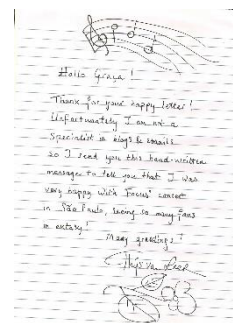 Hallo Graça!
Thank for your happy letter!
Unfortunately I am not a
specialist in blogs & emails
so I send you this hand-written
message to tell you that I was
very happy with Focus' concert
in São Paulo, seeing so many fans
in extasy!
Many greetings
Thijs van Leer